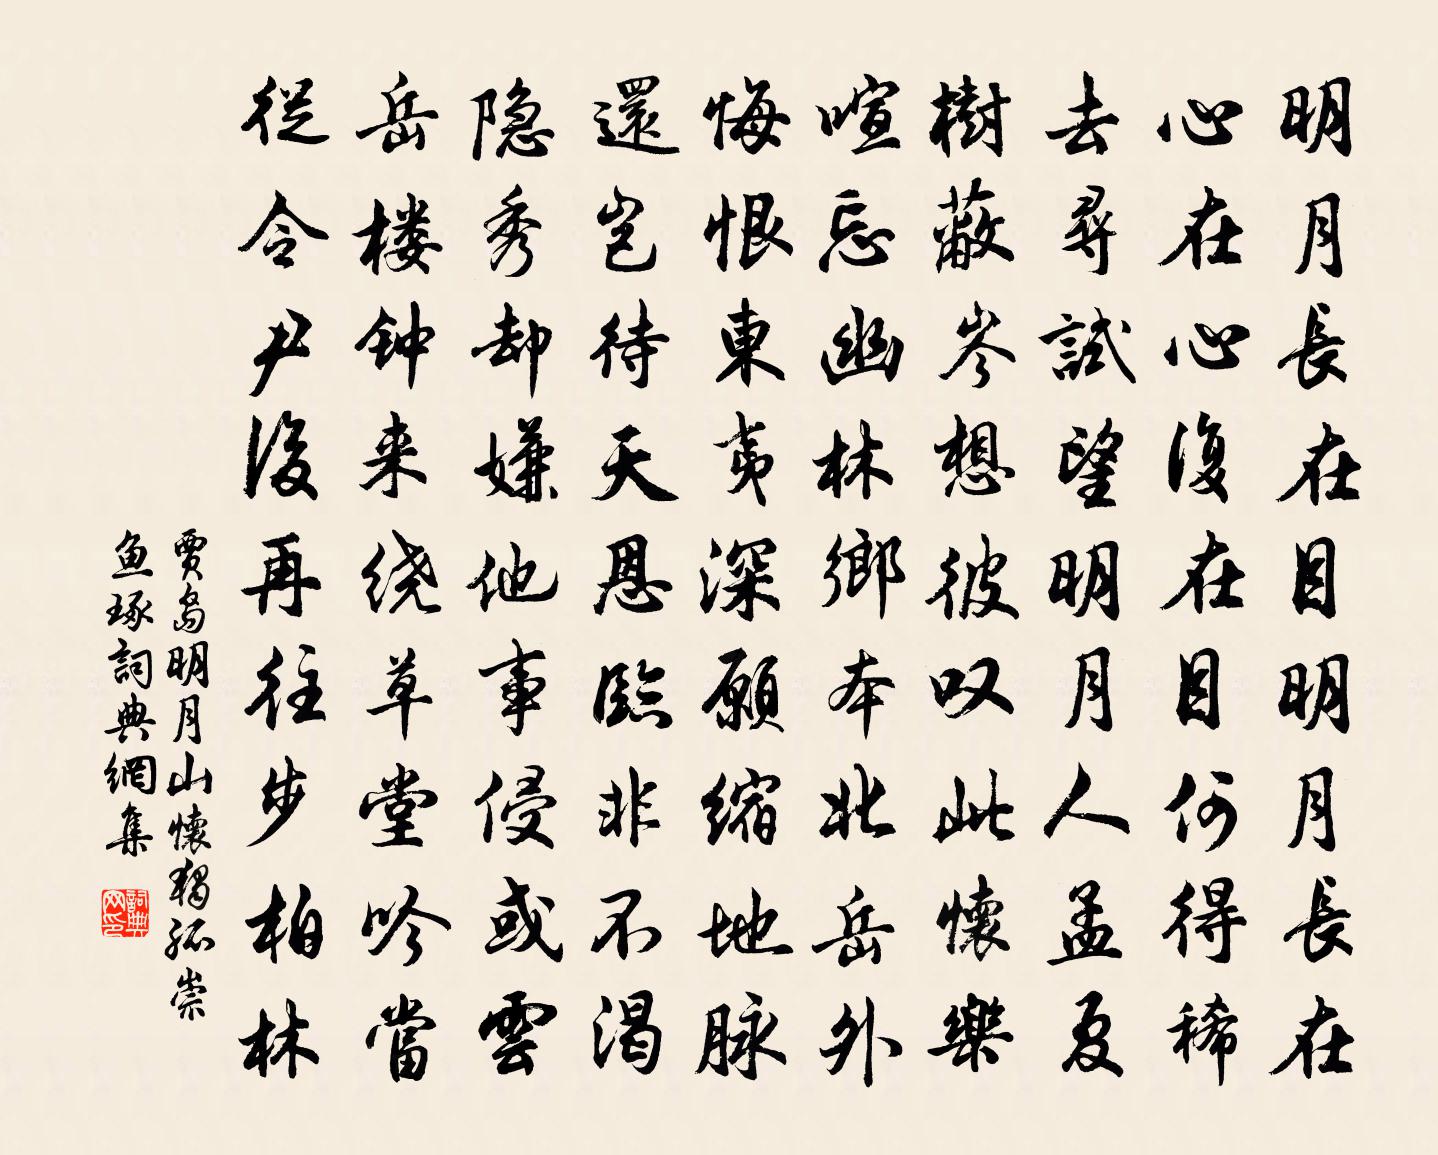 明月長在目明月長在
心在心復在目何得稀
去尋試望明月人孟夏
樹蔽岑想彼叹此懷樂
喧忘幽林鄉本北岳外
悔恨東夷深願縮地脉
還岂待天恩臨非不渴
隐秀却嫌他事侵或雲
岳楼钟来绕草堂吟當
從令尹後再往步柏林
賈島明月山懷獨孤崇
鱼琢詞典網集
詞典
网印